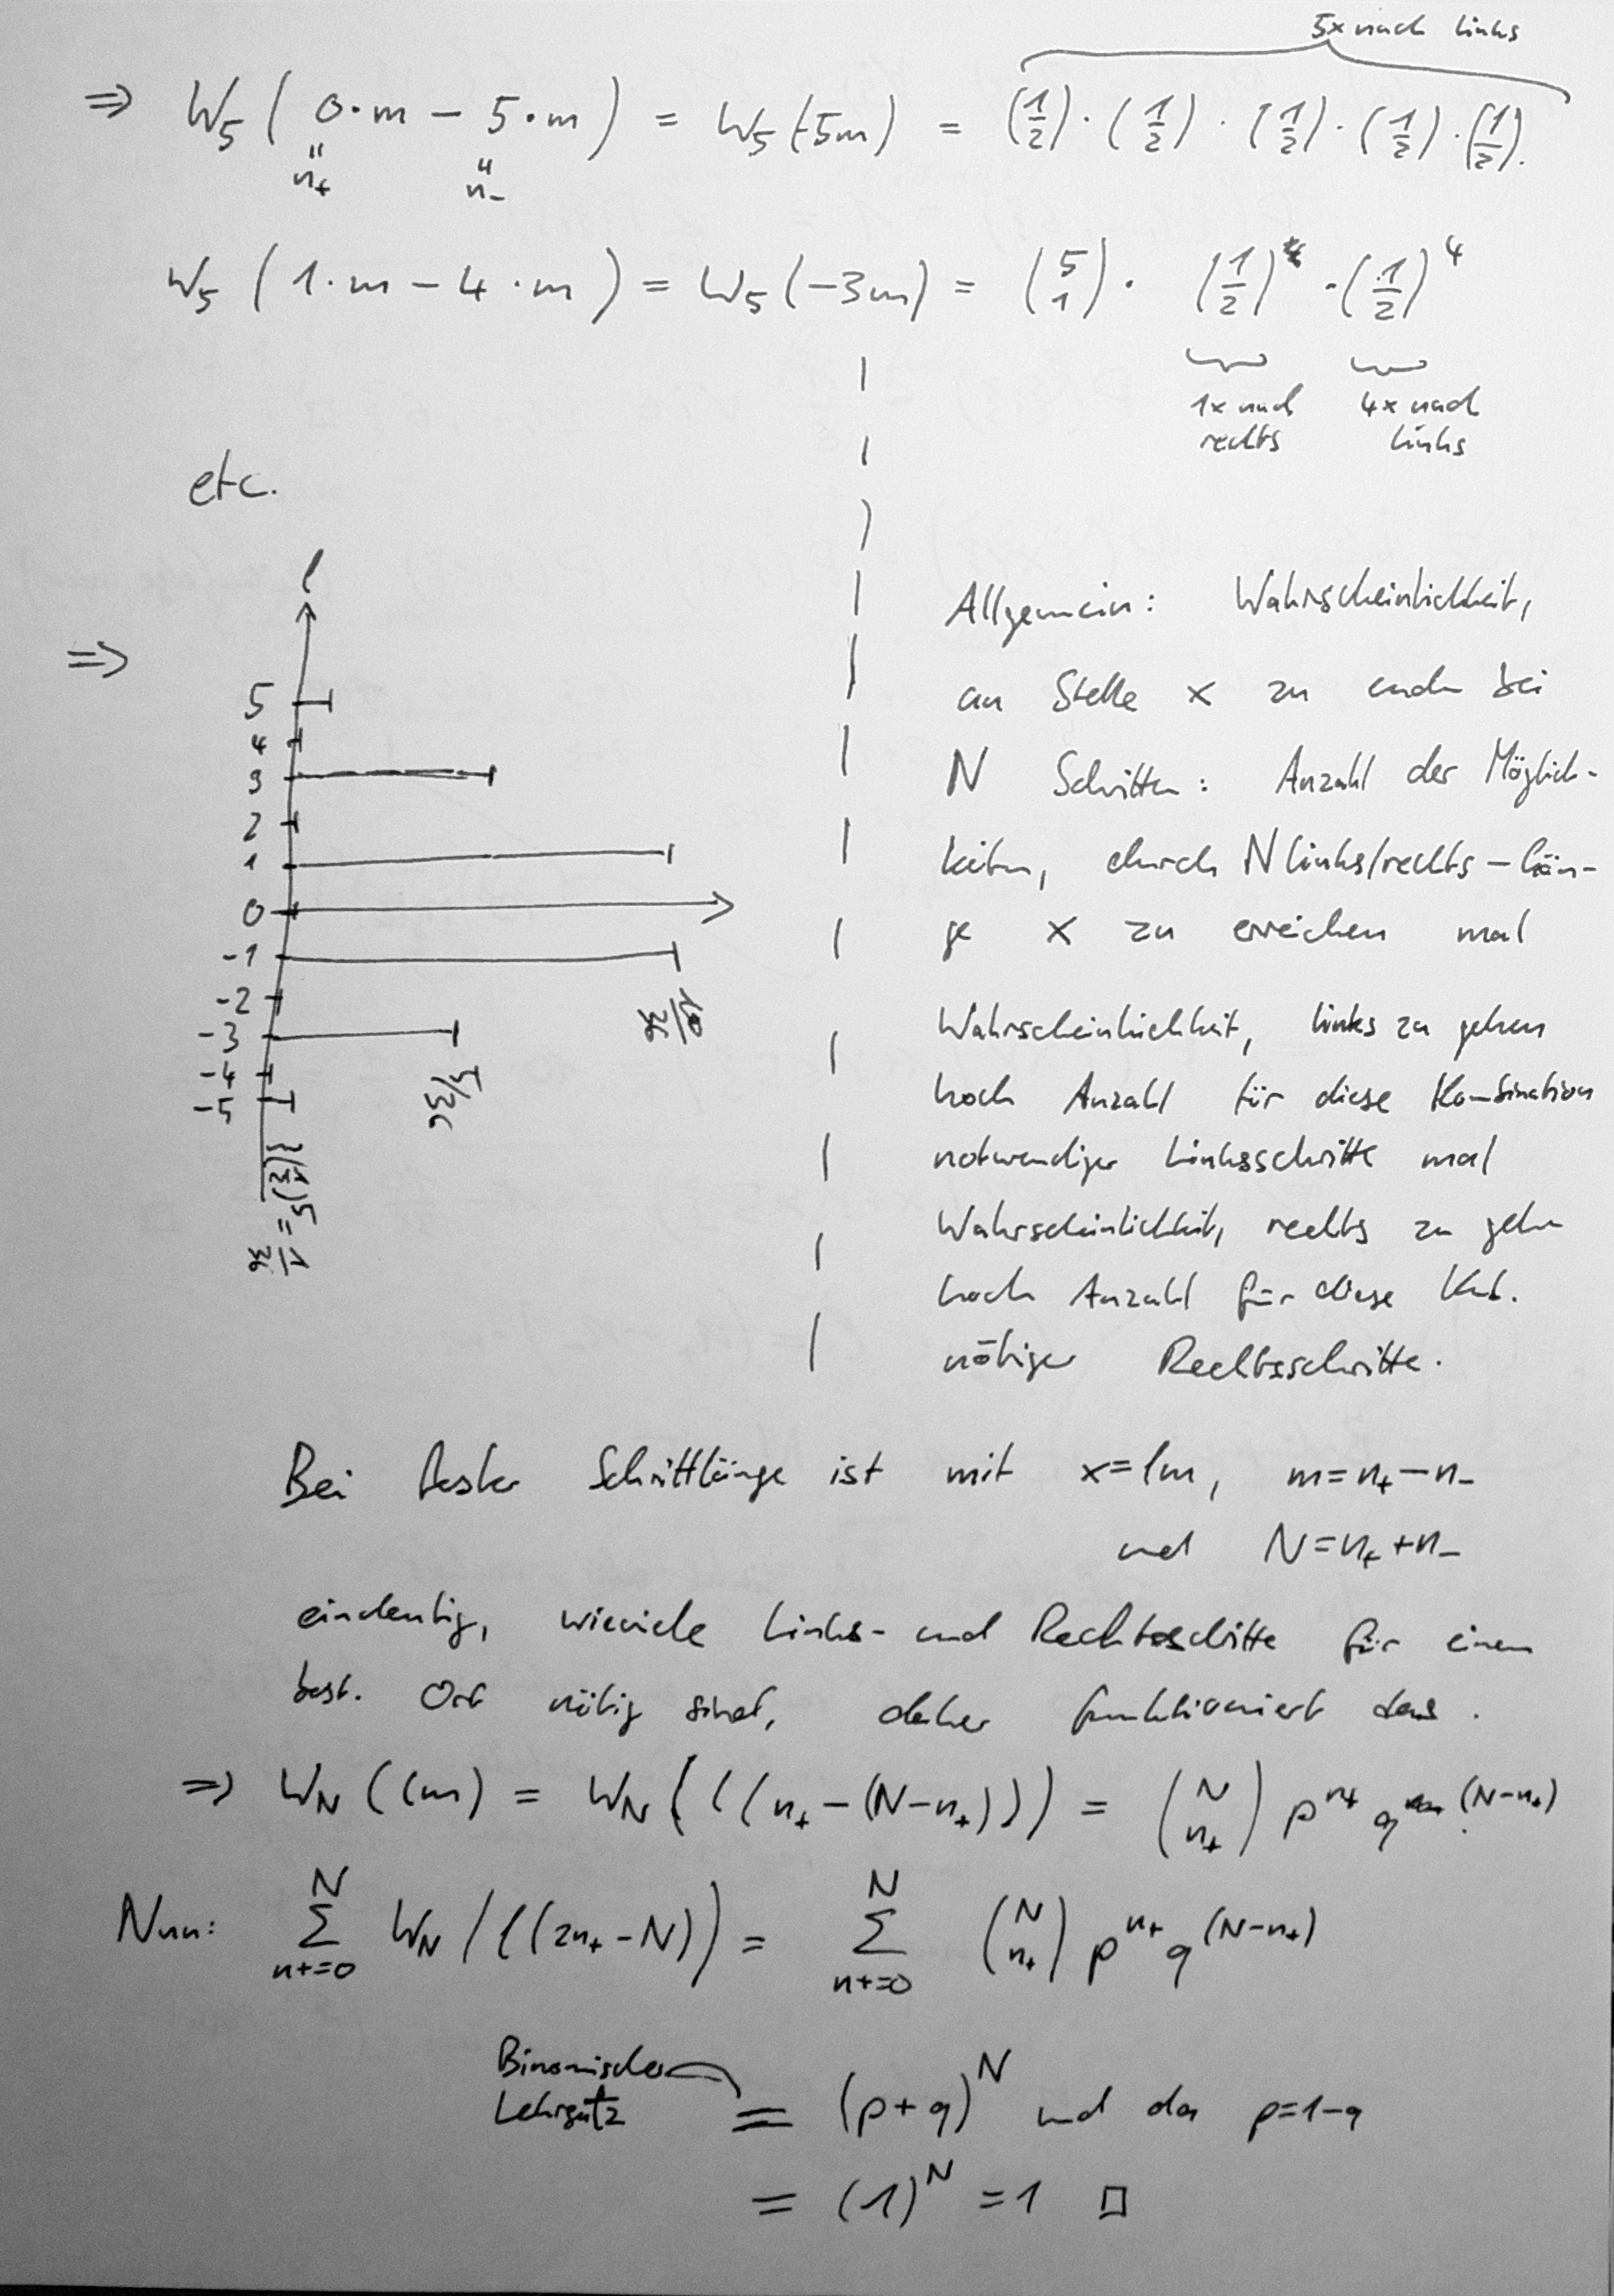 5x nach links
⇒ W₅ ( 0·m − 5·m ) = W₅(−5m) = (1/2) · (1/2) · (1/2) · (1/2) · (1/2).
" n₊ " n₋
W₅ ( 1·m − 4·m ) = W₅(−3m) = (5 1) · (1/2) · (1/2)⁴
1x nach rechts
4x nach links
etc.
l
⇒
5
4
3
2
1
0
-1
-2
-3
-4
-5
10/36
5/36
(1/2)⁵ = 1/36
Allgemein: Wahrscheinlichkeit,
an Stelle x zu enden bei
N Schritten: Anzahl der Möglich-
keiten, durch N links/rechts-Gän-
ge x zu erreichen mal
Wahrscheinlichkeit, links zu gehen
hoch Anzahl für diese Kombination
notwendiger Linksschritte mal
Wahrscheinlichkeit, rechts zu gehen
hoch Anzahl für diese Kmb.
nötiger Rechtsschritte.
Bei fester Schrittlänge ist mit x=lm, m=n₊−n₋
und N=n₊+n₋
eindeutig, wieviele Links- und Rechtsschritte für einen
best. Ort nötig sind, daher funktioniert das.
⇒ W_N (lm) = W_N ( l (n₊ − (N−n₊))) = (N n₊) p^n₊ q^(N−n₊)
Nun: ∑_{n+=0}^N W_N ( l (2n₊−N)) = ∑_{n+=0}^N (N n₊) p^n₊ q^(N−n₊)
Binomischer
Lehrsatz
= (p+q)^N und da p=1−q
= (1)^N = 1 □